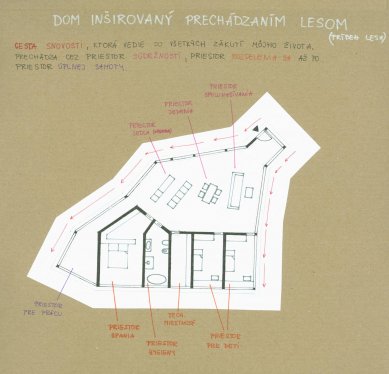 DOM INŠIROVANÝ PRECHÁDZANÍM LESOM
CESTA SNOVOSTI, KTORÁ VEDIE DO VŠETKÝCH ZÁKUTÍ MÔJHO ŽIVOTA,
PRECHÁDZA CEZ PRIESTOR SÚDRŽNOSTI, PRIESTOR ROZDELENIA SA AŽ PO
PRIESTOR ÚPLNEJ SAMOTY
PRIESTOR
SPOLUNAŽÍVANIA
PRIESTOR
JEDENIA
PRIESTOR
JEDLA
PRIESTOR
PRE PRÁCU
PRIESTOR
SPANIA
PRIESTOR
HYGIENY
TECH.
MIESTNOSŤ
PRIESTOR
PRE DETI